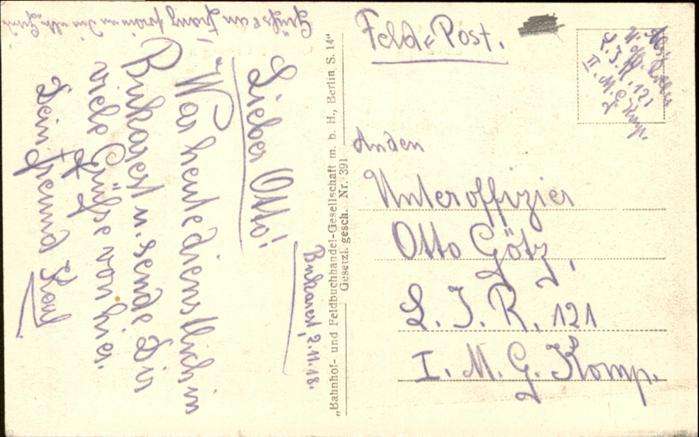 Feld-Post.
L. I. R. 121
II. M. G. Komp.
An den
Unteroffizier
Otto Götz,
L. I. R. 121
I. M. G. Komp.
„Bahnhof- und Feldbuchhandel-Gesellschaft m. b. H., Berlin S. 14"
Gesetzl. gesch. Nr. 391
Bukarest, 2.11.18.
Lieber Otto!
War heute dienstlich in
Bukarest u. sende Dir
viele Grüße von hier.
Dein Freund Karl
Grüße an Franz